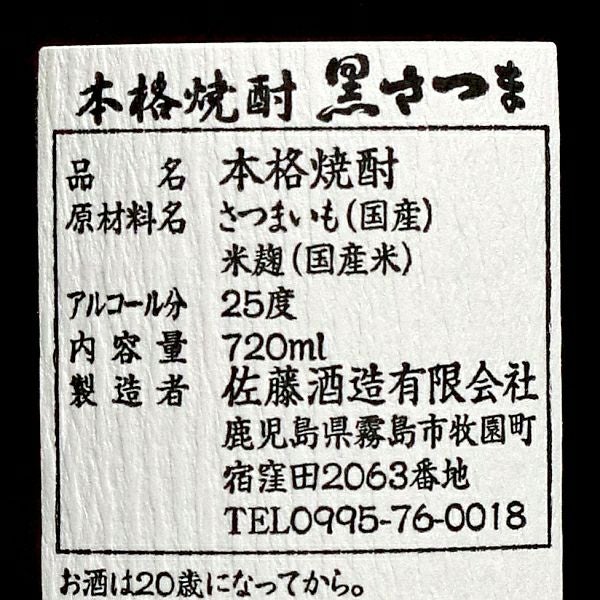 本格焼酎 黒さつま
品名 本格焼酎
原材料名 さつまいも(国産)
米麹(国産米)
アルコール分 25度
内容量 720ml
製造者 佐藤酒造有限会社
鹿児島県霧島市牧園町
宿窪田2063番地
TEL0995-76-0018
お酒は20歳になってから。